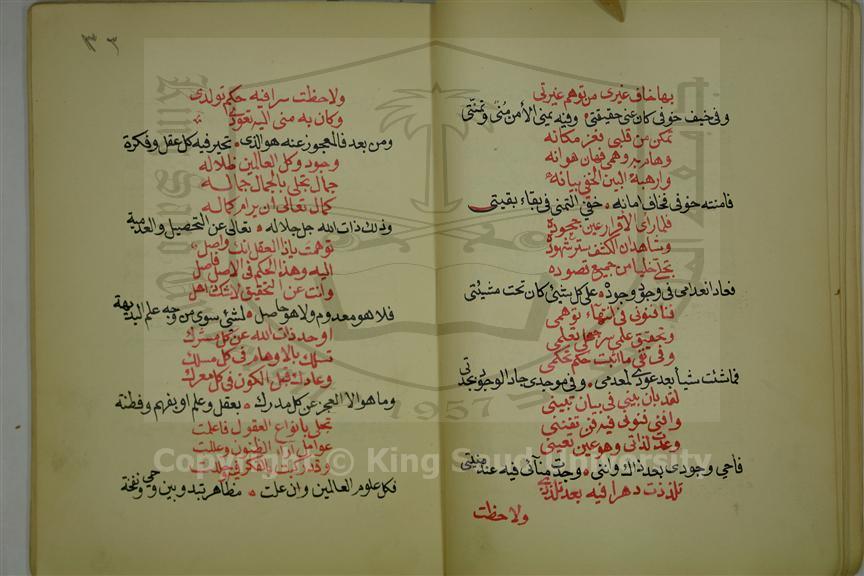 بها خاف غيري من توهم غيرتي
وفي خيف خوفي كان عن حقيقتي • وفيه يمنى الأمن منى وتمنتي
تمكن من قلبي فغز مكانه
وهاربر وهمي فهان هوانه
وارهبة البين الخفي بيانه
فامنته خوفي فخاف امانه • خفي التمني في بقاء بقيتي
فلما رأى الأقرار عين جحوده
وشاهد ان الكشف ستر شهوده
تجلى خليا من جميع قصوده
فعاد انعدامي في وجودي وجوده • على كل شيء كان تحت مشيئتي
فنا فنوني في انتهاء توهمي
وتحقيق علمي سر جهلي تعلمي
وفي ثقتي ما اثبت حكم تحكمي
فما شئت شيأ بعد عودي لمعدمي • وفي موجدي جاد الوجود بجدتي
لقد بان بيني في بيان تبيني
وافنى فنوني فيه فن تفنني
وعند لذاتي وهو عين تعيني
فأحي وجودي بعد ذاك ولنني • وجدت مناتي فيه عند منيتي
تلذذت دهرا فيه بعد تلذذي
ولاحظت
٣٣
ولاحظت سرا فيه حكم تولدي
وكان به مني اليه تعوذي
ومن بعد فالمعجوز عنه هو الذي • تحير فيه كل عقل وفكرة
وجود وكل العالمين ظلاله
جمال تجلى بالجمال جماله
كمال تعالى ان يرام كماله
وذلك ذات الله جل جلاله • تعالى عن التحصيل والعدمية
توهمت ياذا العقل انك واصل
اليه وهذا الحكم في الاصل فاصل
وانت عن التحقيق لا شك اهل
فلا هو معدوم ولا هو حاصل • لشئ سوى من وجه علم البديهة
اوحد ذات الله عن كل مشرك
تسلك بالاوهام في كل مسلك
وعادك قبل الكون في كل معرك
وما هو الا العجز عن كل مدرك • بعقل وعلم او بفهم وفطنة
تجلى بانواع العقول فاعلت
عوامل نار الظنون وعالت
وقد ركبت بالفكر فيه
فكل علوم العالمين وان علت • مظاهر تبدو بين وحي ونفحة
Copyright © King Saud University
1957